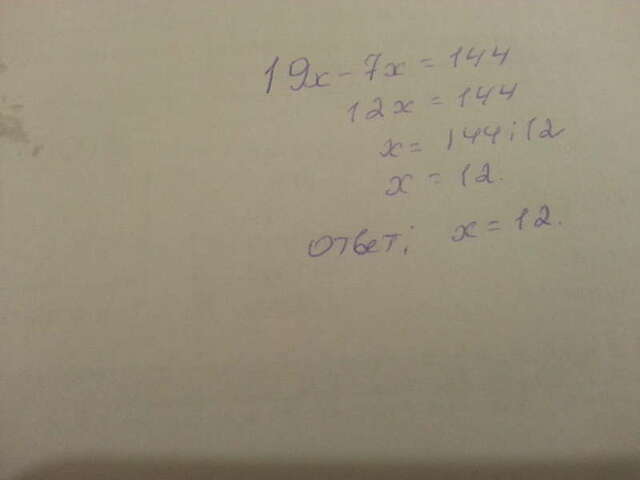 19x - 7x = 144
12x = 144
x = 144 : 12
x = 12.
ответ: x = 12.